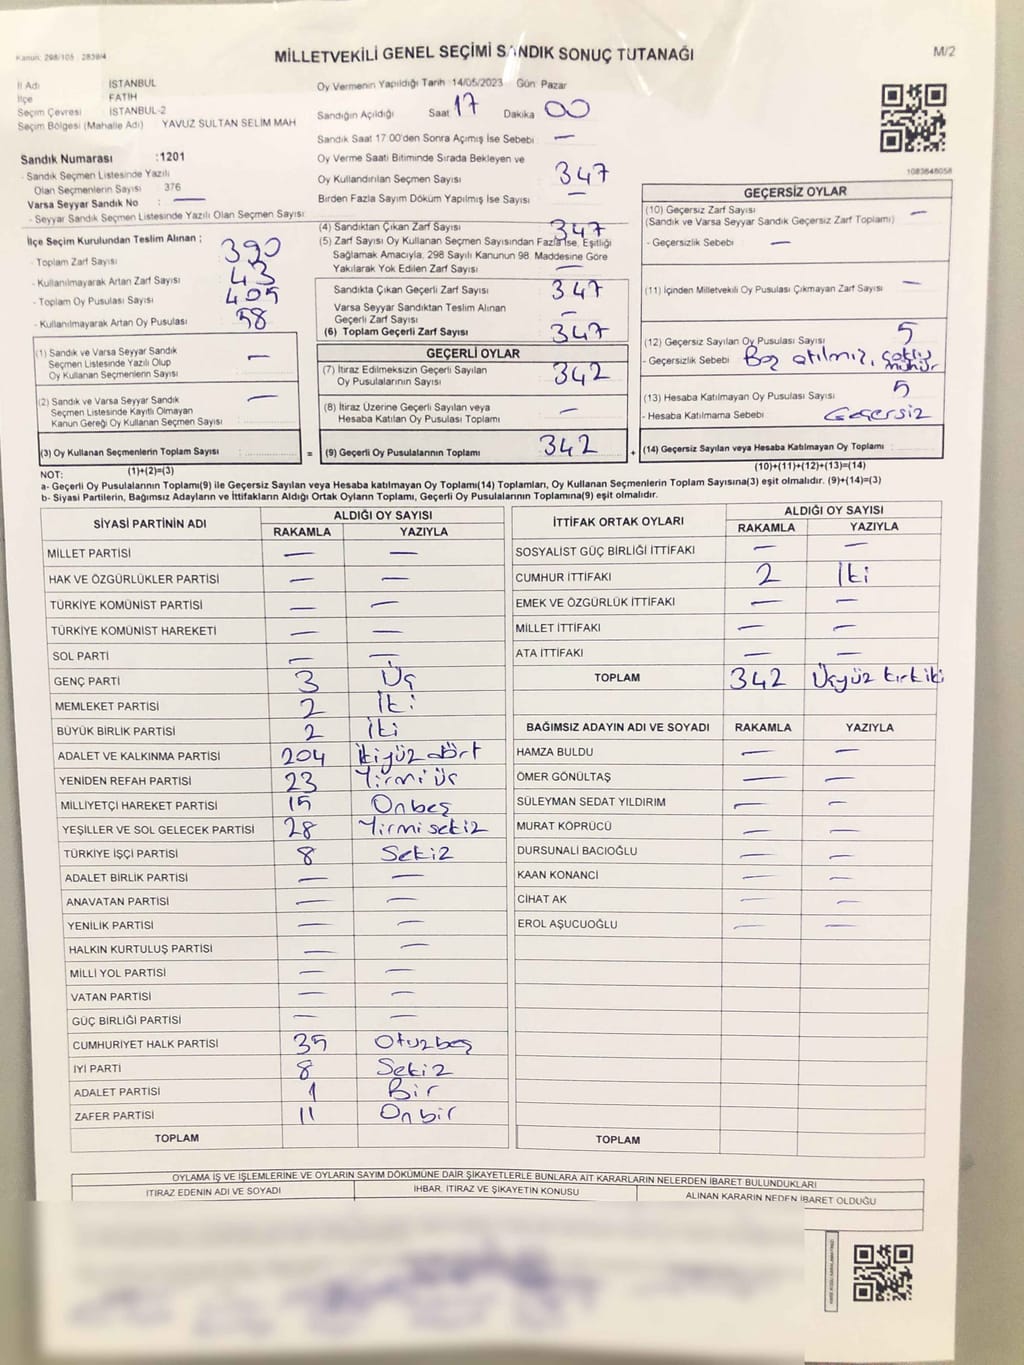 Kanun: 298/105 2839/4
MİLLETVEKİLİ GENEL SEÇİMİ SANDIK SONUÇ TUTANAĞI
M/2
İl Adı İSTANBUL
İlçe FATİH
Seçim Çevresi İSTANBUL-2
Seçim Bölgesi (Mahalle Adı) YAVUZ SULTAN SELİM MAH
Sandık Numarası :1201
- Sandık Seçmen Listesinde Yazılı
Olan Seçmenlerin Sayısı 376
Varsa Seyyar Sandık No : —
- Seyyar Sandık Seçmen Listesinde Yazılı Olan Seçmen Sayısı
Oy Vermenin Yapıldığı Tarih :14/05/2023 Gün: Pazar
Sandığın Açıldığı Saat 17 Dakika 00
Sandık Saat 17:00'den Sonra Açımış İse Sebebi : —
Oy Verme Saati Bitiminde Sırada Bekleyen ve
Oy Kullandırılan Seçmen Sayısı 347
Birden Fazla Sayım Döküm Yapılmış İse Sayısı —
1083848058
İlçe Seçim Kurulundan Teslim Alınan ;
- Toplam Zarf Sayısı 390
- Kullanılmayarak Artan Zarf Sayısı 43
- Toplam Oy Pusulası Sayısı 405
- Kullanılmayarak Artan Oy Pusulası 58
(1) Sandık ve Varsa Seyyar Sandık
Seçmen Listesinde Yazılı Olup
Oy Kullanan Seçmenlerin Sayısı —
(2) Sandık ve Varsa Seyyar Sandık
Seçmen Listesinde Kayıtlı Olmayan
Kanun Gereği Oy Kullanan Seçmen Sayısı —
(3) Oy Kullanan Seçmenlerin Toplam Sayısı
(1)+(2)=(3)
(4) Sandıktan Çıkan Zarf Sayısı 347
(5) Zarf Sayısı Oy Kullanan Seçmen Sayısından Fazla İse, Eşitliği
Sağlamak Amacıyla, 298 Sayılı Kanunun 98. Maddesine Göre
Yakılarak Yok Edilen Zarf Sayısı —
Sandıkta Çıkan Geçerli Zarf Sayısı 347
Varsa Seyyar Sandıktan Teslim Alınan
Geçerli Zarf Sayısı —
(6) Toplam Geçerli Zarf Sayısı 347
GEÇERLİ OYLAR
(7) İtiraz Edilmeksizin Geçerli Sayılan
Oy Pusulalarının Sayısı 342
(8) İtiraz Üzerine Geçerli Sayılan veya
Hesaba Katılan Oy Pusulası Toplamı —
= (9) Geçerli Oy Pusulalarının Toplamı 342
GEÇERSİZ OYLAR
(10) Geçersiz Zarf Sayısı —
(Sandık ve Varsa Seyyar Sandık Geçersiz Zarf Toplamı)
- Geçersizlik Sebebi —
(11) İçinden Milletvekili Oy Pusulası Çıkmayan Zarf Sayısı —
(12) Geçersiz Sayılan Oy Pusulası Sayısı 5
- Geçersizlik Sebebi Boş atılmış, çoklu
mühür
(13) Hesaba Katılmayan Oy Pusulası Sayısı 5
- Hesaba Katılmama Sebebi Geçersiz
+ (14) Geçersiz Sayılan veya Hesaba Katılmayan Oy Toplamı
(10)+(11)+(12)+(13)=(14)
NOT:
a- Geçerli Oy Pusulalarının Toplamı(9) ile Geçersiz Sayılan veya Hesaba katılmayan Oy Toplamı(14) Toplamları, Oy Kullanan Seçmenlerin Toplam Sayısına(3) eşit olmalıdır. (9)+(14)=(3)
b- Siyasi Partilerin, Bağımsız Adayların ve İttifakların Aldığı Ortak Oyların Toplamı, Geçerli Oy Pusulalarının Toplamına(9) eşit olmalıdır.
SİYASİ PARTİNİN ADI ALDIĞI OY SAYISI
RAKAMLA YAZIYLA
MİLLET PARTİSİ — —
HAK VE ÖZGÜRLÜKLER PARTİSİ — —
TÜRKİYE KOMÜNİST PARTİSİ — —
TÜRKİYE KOMÜNİST HAREKETİ — —
SOL PARTİ — —
GENÇ PARTİ 3 Üç
MEMLEKET PARTİSİ 2 İki
BÜYÜK BİRLİK PARTİSİ 2 İki
ADALET VE KALKINMA PARTİSİ 204 İkiyüz dört
YENİDEN REFAH PARTİSİ 23 Yirmi üç
MİLLİYETÇİ HAREKET PARTİSİ 15 Onbeş
YEŞİLLER VE SOL GELECEK PARTİSİ 28 Yirmi sekiz
TÜRKİYE İŞÇİ PARTİSİ 8 Sekiz
ADALET BİRLİK PARTİSİ — —
ANAVATAN PARTİSİ — —
YENİLİK PARTİSİ — —
HALKIN KURTULUŞ PARTİSİ — —
MİLLİ YOL PARTİSİ — —
VATAN PARTİSİ — —
GÜÇ BİRLİĞİ PARTİSİ — —
CUMHURİYET HALK PARTİSİ 35 Otuzbeş
İYİ PARTİ 8 Sekiz
ADALET PARTİSİ 1 Bir
ZAFER PARTİSİ 11 On bir
TOPLAM
İTTİFAK ORTAK OYLARI ALDIĞI OY SAYISI
RAKAMLA YAZIYLA
SOSYALİST GÜÇ BİRLİĞİ İTTİFAKI — —
CUMHUR İTTİFAKI 2 İki
EMEK VE ÖZGÜRLÜK İTTİFAKI — —
MİLLET İTTİFAKI — —
ATA İTTİFAKI — —
TOPLAM 342 Üçyüz kırk iki
BAĞIMSIZ ADAYIN ADI VE SOYADI RAKAMLA YAZIYLA
HAMZA BULDU — —
ÖMER GÖNÜLTAŞ — —
SÜLEYMAN SEDAT YILDIRIM — —
MURAT KÖPRÜCÜ — —
DURSUNALİ BACIOĞLU — —
KAAN KONANCİ — —
CİHAT AK — —
EROL AŞUCUOĞLU — —
TOPLAM
OYLAMA İŞ VE İŞLEMLERİNE VE OYLARIN SAYIM DÖKÜMÜNE DAİR ŞİKAYETLERLE BUNLARA AİT KARARLARIN NELERDEN İBARET BULUNDUKLARI
İTİRAZ EDENİN ADI VE SOYADI İHBAR, İTİRAZ VE ŞİKAYETİN KONUSU ALINAN KARARIN NEDEN İBARET OLDUĞU